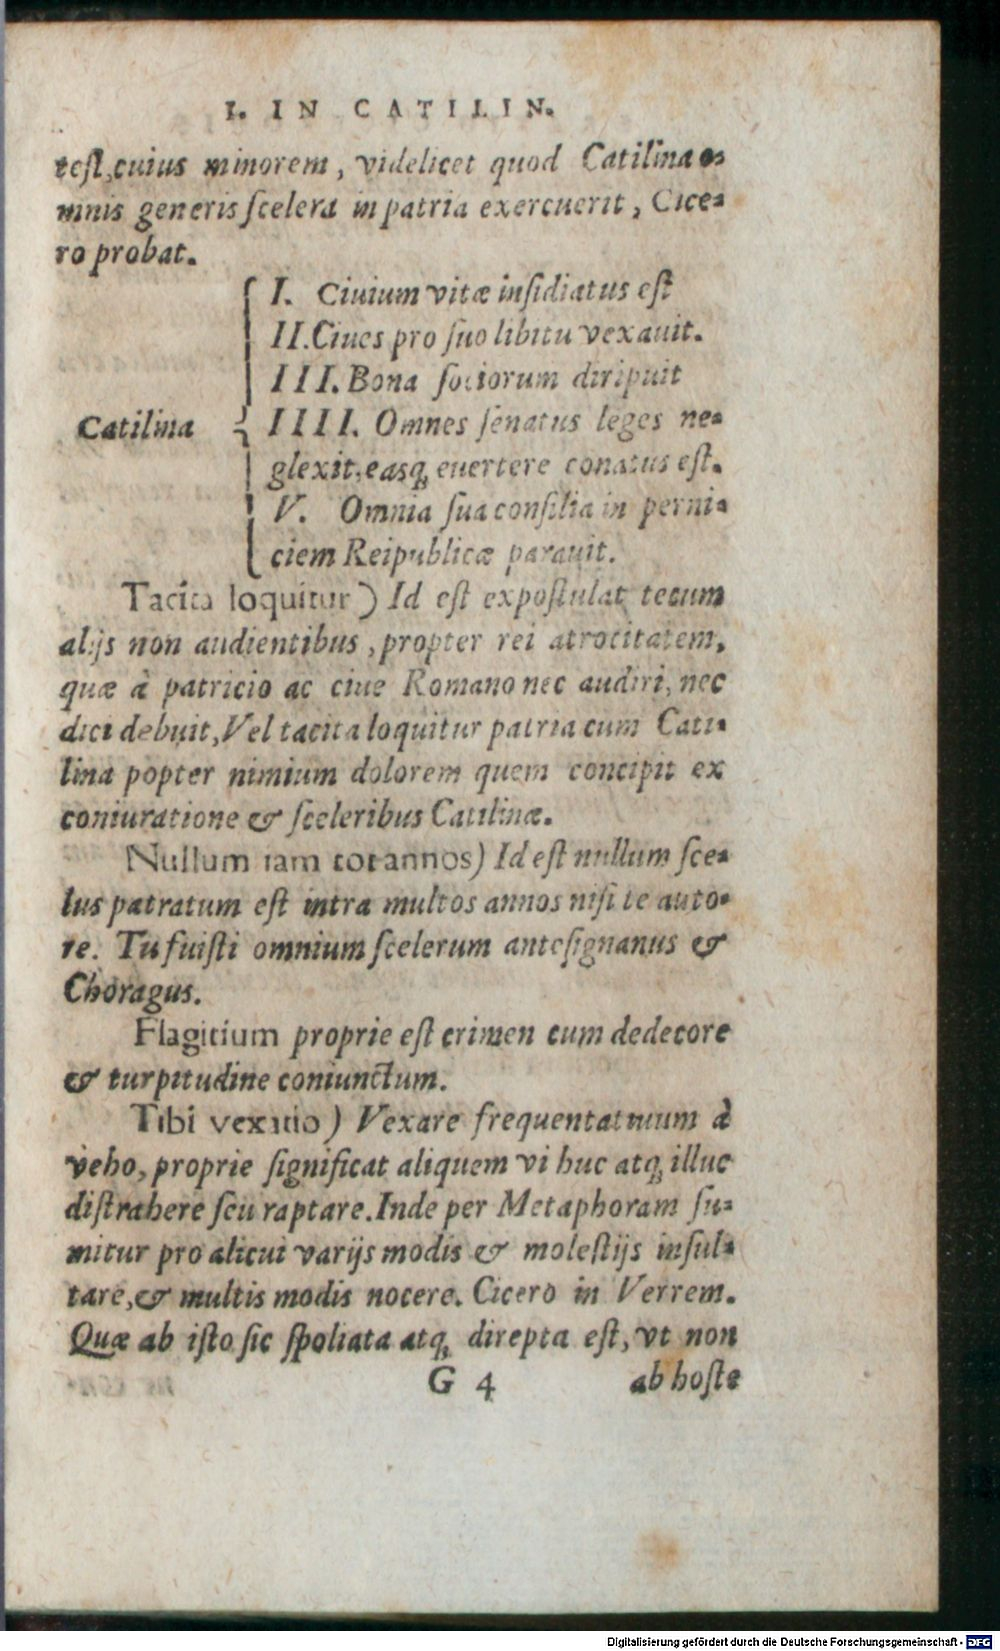 I. IN CATILIN.
test, cuius minorem, videlicet quod Catilina o-
mnis generis scelera in patria exercuerit, Cice-
ro probat.
I. Ciuium vitæ insidiatus est
II. Ciues pro suo libitu vexauit.
III. Bona sociorum diripuit
Catilina IIII. Omnes senatus leges ne-
glexit, easq; euertere conatus est.
V. Omnia sua consilia in perni-
ciem Reipublicæ parauit.
Tacita loquitur) Id est expostulat tecum
alijs non audientibus, propter rei atrocitatem,
quæ à patricio ac ciue Romano nec audiri, nec
dici debuit, Vel tacita loquitur patria cum Cati-
lina popter nimium dolorem quem concipit ex
coniuratione & sceleribus Catilinæ.
Nullum iam tot annos) Id est nullum sce-
lus patratum est intra multos annos nisi te auto-
re. Tu fuisti omnium scelerum antesignanus &
Choragus.
Flagitium proprie est crimen cum dedecore
& turpitudine coniunctum.
Tibi vexatio) Vexare frequentatiuum à
veho, proprie significat aliquem vi huc atq; illuc
distrahere seu raptare. Inde per Metaphoram su-
mitur pro alicui varijs modis & molestijs insul-
tare, & multis modis nocere. Cicero in Verrem.
Quæ ab isto sic spoliata atq; direpta est, vt non
G 4 ab hoste
Digitalisierung gefördert durch die Deutsche Forschungsgemeinschaft - DFG